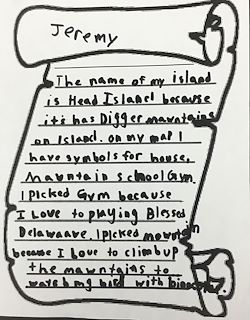 Jeremy
The name of my island
is Head Island because
it's has Digger mawntains
on Island. on my map I
have symbols for house,
Mawntain school Gym
I picked Gym because
I Love to playing Blessed
Delawaave. I picked mowntain
because I Love to climb up
the mawntains to
watch bird with